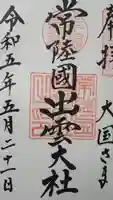 奉拝
大国さま
常陸國出雲大社
令和五年五月二十一日